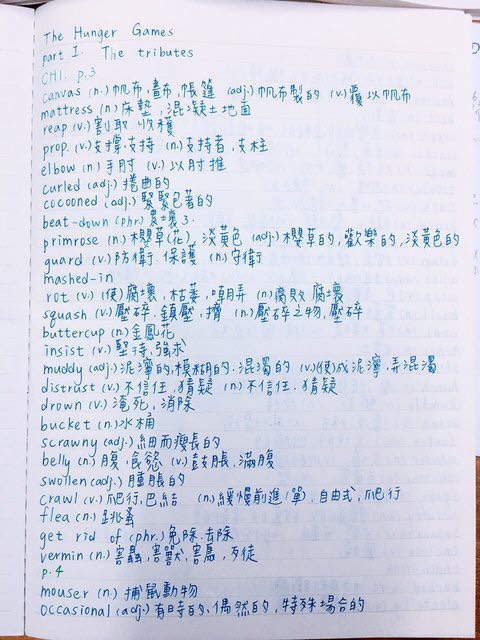 The Hunger Games
part I. The tributes
CH1. p.3
canvas (n.) 帆布、畫布,帳篷 (adj.) 帆布製的 (v.) 覆以帆布
mattress (n.) 床墊,混凝土地面
reap (v.) 割取.收穫
prop. (v.) 支撐.支持 (n.) 支持者,支柱
elbow (n.) 手肘 (v.) 以肘推
curled (adj.) 捲曲的
cocooned (adj.) 緊緊包著的
beat-down (phr.)
primrose (n.) 櫻草(花),淡黃色 (adj.) 櫻草的,歡樂的,淡黃色的
guard (v.) 防衛.保護 (n.) 守衛
mashed-in
rot (v.) (使)腐壞,枯萎, (n.) 腐敗.腐壞
squash (v.) 壓碎.鎮壓,擠 (n.) 壓碎之物,壓碎
buttercup (n.) 金鳳花
insist (v.) 堅持,強求
muddy (adj.) 泥濘的,模糊的.混濁的 (v.)(使)成泥濘,弄混濁
distrust (v.) 不信任,猜疑 (n.) 不信任.猜疑
drown (v.) 淹死,消除
bucket (n.) 水桶
scrawny (adj.) 細而瘦長的
belly (n.) 腹,食慾 (v.) 鼓脹,滿腹
swollen (adj.) 腫脹的
crawl (v.) 爬行,巴結 (n.) 緩慢前進(單),自由式,爬行
flea (n.) 跳蚤
get rid of (phr.) 免除.去除
vermin (n.) 害蟲,害獸,害鳥,歹徒
p.4
mouser (n.) 捕鼠動物
occasional (adj.) 有時的.偶然的,特殊場合的